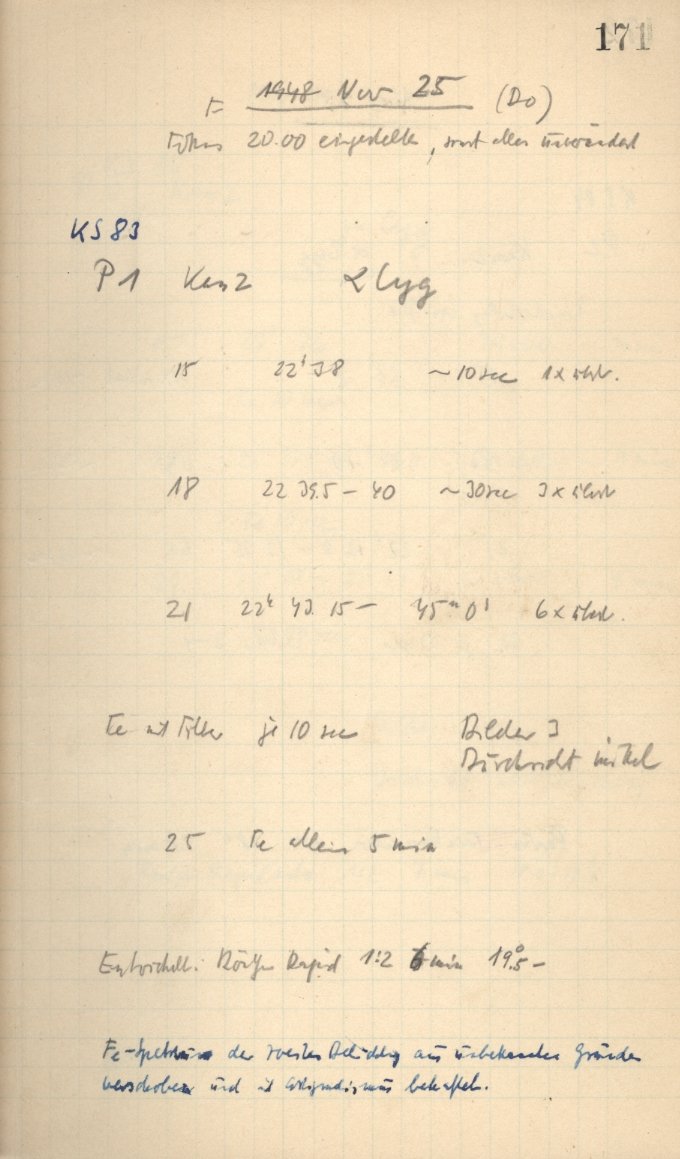 171
F 1948 Nov 25 (Do)
Fokus 20.00 eingestellt, sonst alles unverändert
KS 83
P 1 Ken 2 α Cyg
15 22ʰ 38 ~10 sec 1 x
18 22 39.5 – 40 ~30 sec 3 x
21 22ʰ 43 15 – 45ᵐ 0ˢ 6 x
Fe mit Filter je 10 sec Bilder 3
Durchsicht mittel
25 Fe allein 5 min
Entwickelt. Rapid 1:2 6 min 19°.5 –
Fe-Spektrum der zweiten Belichtg aus unbekannten Gründen
verschoben und mit Astigmatismus behaftet.